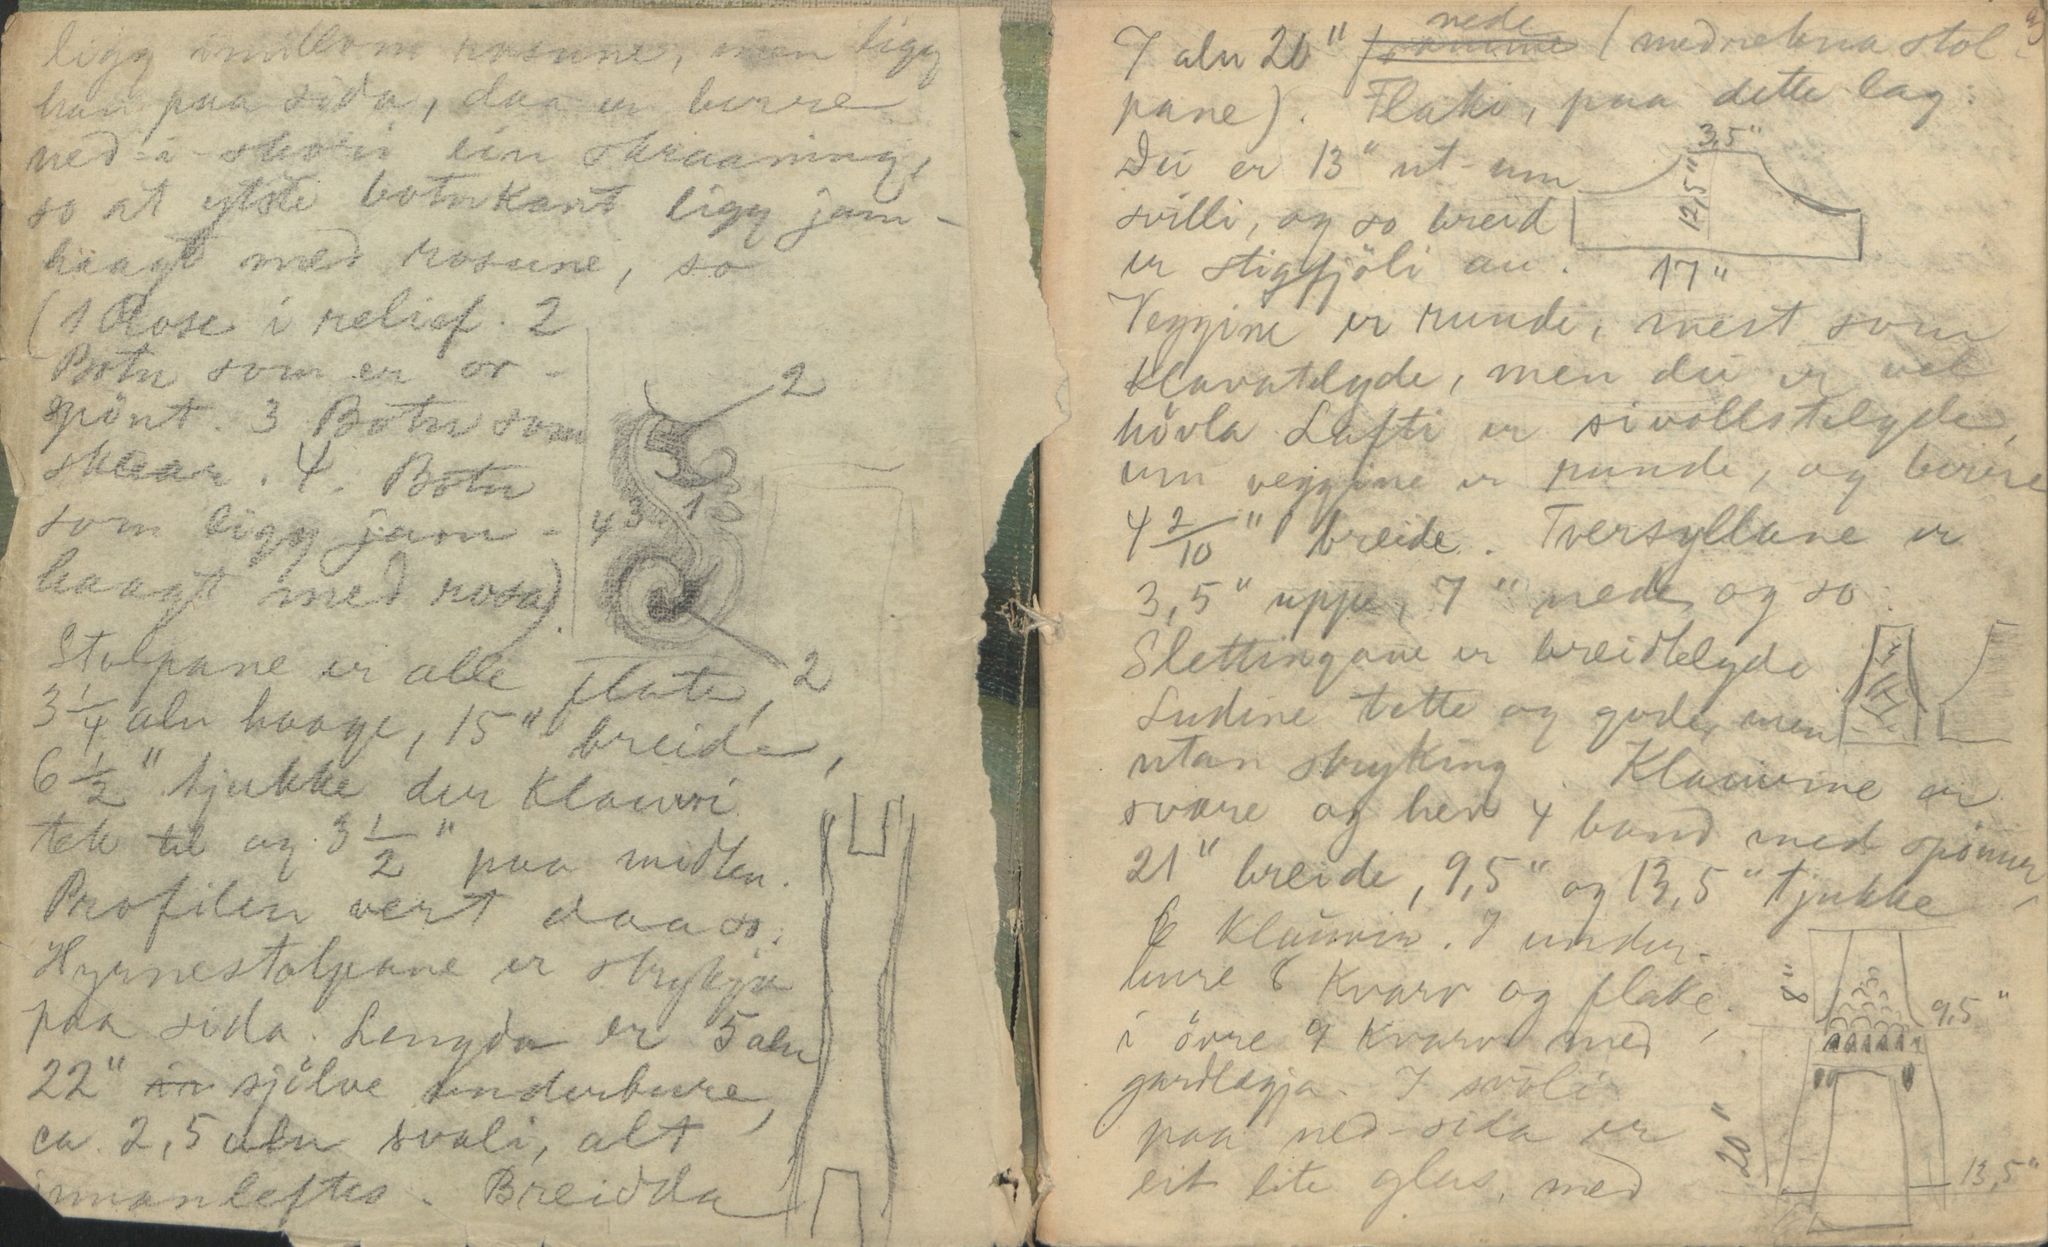 ligg imillom rosune, men ligg
han paa sida, daa er berre
ned i skori ein skraaning,
so at ytste botnkant ligg jam-
haagt med rosune, so
(1 Rose i relief. 2
Botn som er or-
spönt. 3 Botn som
skraar. 4. Botn
som ligg jam-
haagt med rosa).
2
4 3 1
2
Stolpane er alle flate,
3 1/4 aln haage, 15" breide,
6 1/2" tjukke der Klauvi
tek til og 3 1/2" paa midten.
Profilen vert daa so:
Hyrnestolpane er strykja
paa sida. Lengda er 5 aln
22" i sjölve underbure,
ca. 2,5 aln svali, alt
innanleftes. Breidda
7 aln 20" framme nede (medrekna stol-
pane). Flake, paa dette lag:
Dei er 13" ut-um
svilli, og so breid
er stigfjöli au.
3,5"
12,5"
17"
Veggine er runde, mest som
klavatelgde, men dei er vel
hövla. Lafti er sivallstelgde,
um veggine er runde, og berre
4 2/10" breide. Tversyllane er
3,5" uppe, 7" nede, og so
Slettingane er breidtelgde
Sudine tette og gode, men
utan stryking. Klauvine er
svære og hev 4 band med spönner
21" breide, 9,5" og 13,5" tjukke
Klauvin. I under-
bure 8 Kvarv og flake,
i övre 9 Kvarv med
gardlægja. I svoli
paa ned-sida er
eit lite glas, med
8"
9,5"
20"
13,5"